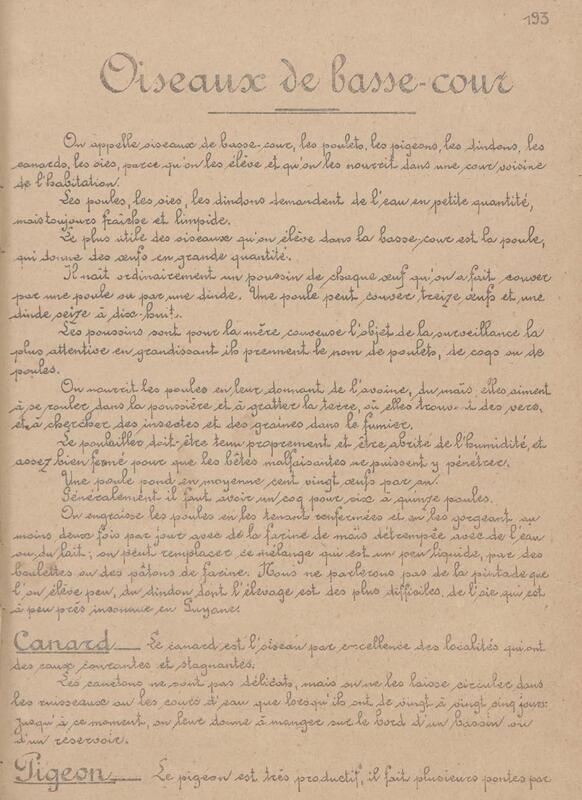 193
Oiseaux de basse-cour
On appelle oiseaux de basse-cour, les poulets, les pigeons, les dindons, les
canards, les oies, parce qu'on les élève et qu'on les nourrit dans une cour voisine
de l'habitation.
Les poules, les oies, les dindons demandent de l'eau en petite quantité,
mais toujours fraîche et limpide.
Le plus utile des oiseaux qu'on élève dans la basse-cour est la poule,
qui donne des œufs en grande quantité.
Il naît ordinairement un poussin de chaque œuf qu'on a fait couver
par une poule ou par une dinde. Une poule peut couver treize œufs et une
dinde seize à dix-huit.
Les poussins sont pour la mère couveuse l'objet de la surveillance la
plus attentive en grandissant ils prennent le nom de poulets, de coqs ou de
poules.
On nourrit les poules en leur donnant de l'avoine, du maïs, elles aiment
à se rouler dans la poussière et à gratter la terre, où elles trouvent des vers,
et à chercher des insectes et des graines dans le fumier.
Le poulailler doit-être tenu proprement et être abrité de l'humidité, et
assez bien fermé pour que les bêtes malfaisantes ne puissent y pénétrer.
Une poule pond en moyenne cent vingt œufs par an.
Généralement il faut avoir un coq pour dix à quinze poules.
On engraisse les poules en les tenant renfermées et en les gorgeant au
moins deux fois par jour avec de la farine de maïs détrempée avec de l'eau
ou du lait; on peut remplacer ce mélange qui est un peu liquide, par des
boulettes ou des pâtons de farine. Nous ne parlerons pas de la pintade que
l'on élève peu, du dindon dont l'élevage est des plus difficiles, de l'oie qui est
à peu près inconnue en Guyane.
Canard Le canard est l'oiseau par excellence des localités qui ont
des eaux courantes et stagnantes.
Les canetons ne sont pas délicats, mais on ne les laisse circuler dans
les ruisseaux ou les cours d'eau que lorsqu'ils ont de vingt à vingt cinq jours;
jusqu'à ce moment, on leur donne à manger sur le bord d'un bassin ou
d'un réservoir.
Pigeon Le pigeon est très productif, il fait plusieurs pontes par